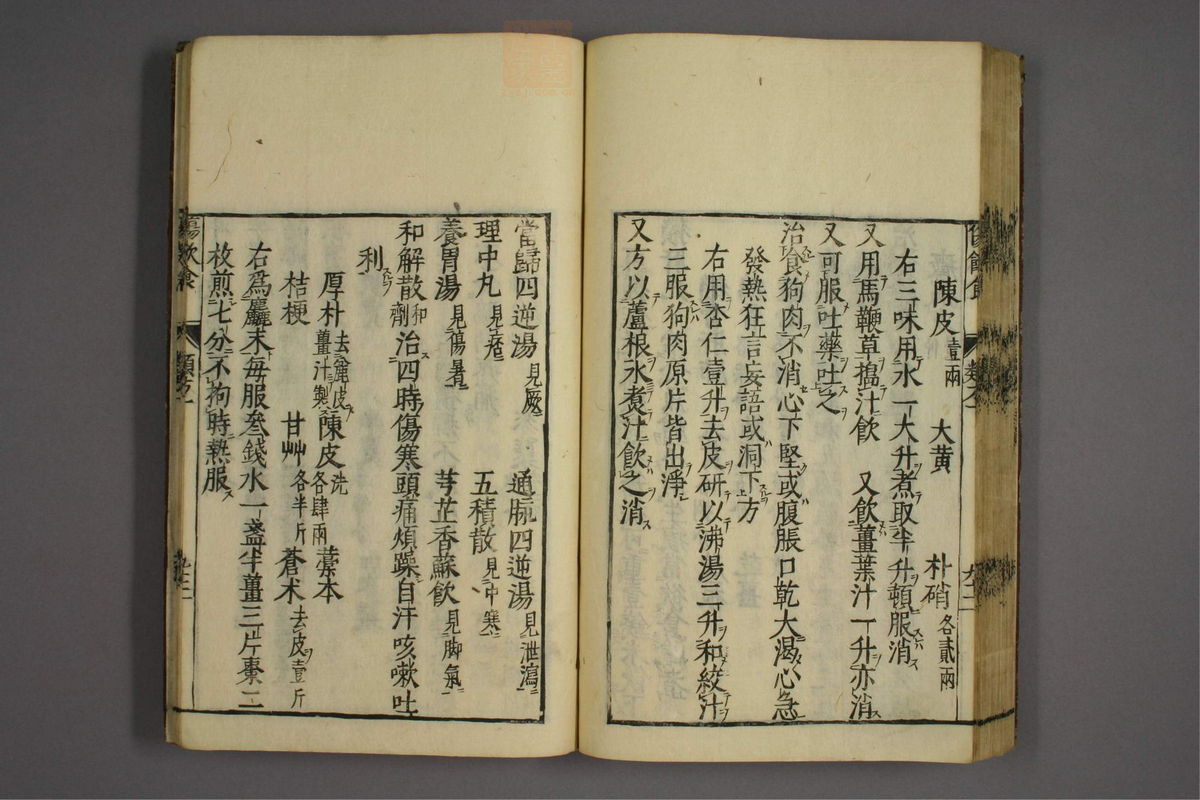 陳皮壹兩 大黄 朴硝各貳兩
右三味用水一大升煮取半升頓服消
又用馬鞭草搗汁飲 又飲薑葉汁一升亦消
又可服吐藥吐之
治食狗肉不消心下堅或腹脹口乾大渴心急
發熱狂言妄語或洞下方
右用杏仁壹升去皮研以沸湯三升和絞汁
三服狗肉原片皆出淨
又方以蘆根水煮汁飲之消
當歸四逆湯見厥 通脈四逆湯見泄瀉
理中丸見 五積散見中寒
養胃湯見傷暑 芎芷香蘇飲見脚氣
和解散和劑 治四時傷寒頭痛煩躁自汗咳嗽吐
利
厚朴去麄皮薑汁製 陳皮洗各肆兩 藁本
桔梗 甘艸各半斤 蒼术去皮壹斤
右爲麤末每服叄錢水一盞半薑三片棗二
枚煎七分不拘時熱服
傷飲食 類方